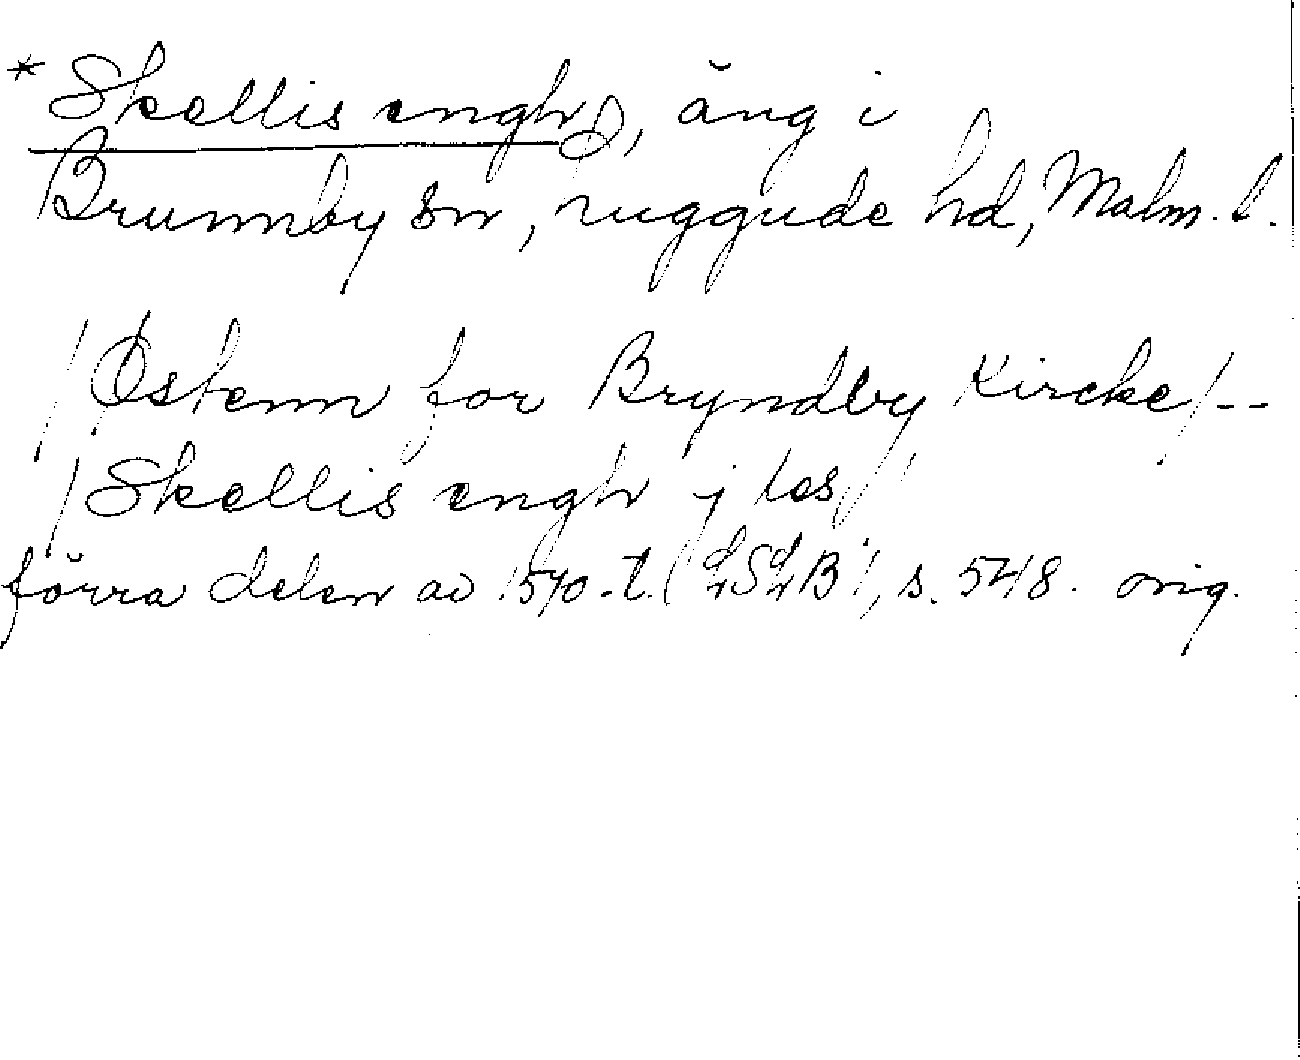 * Skellis engh, äng i
Brunnby sn, Luggude hd, Malm. l.
/Østenn for Bryndby Kircke/--
/Skellis engh j les/
förra delen av 1540-t. (LSLB), s. 548. orig.